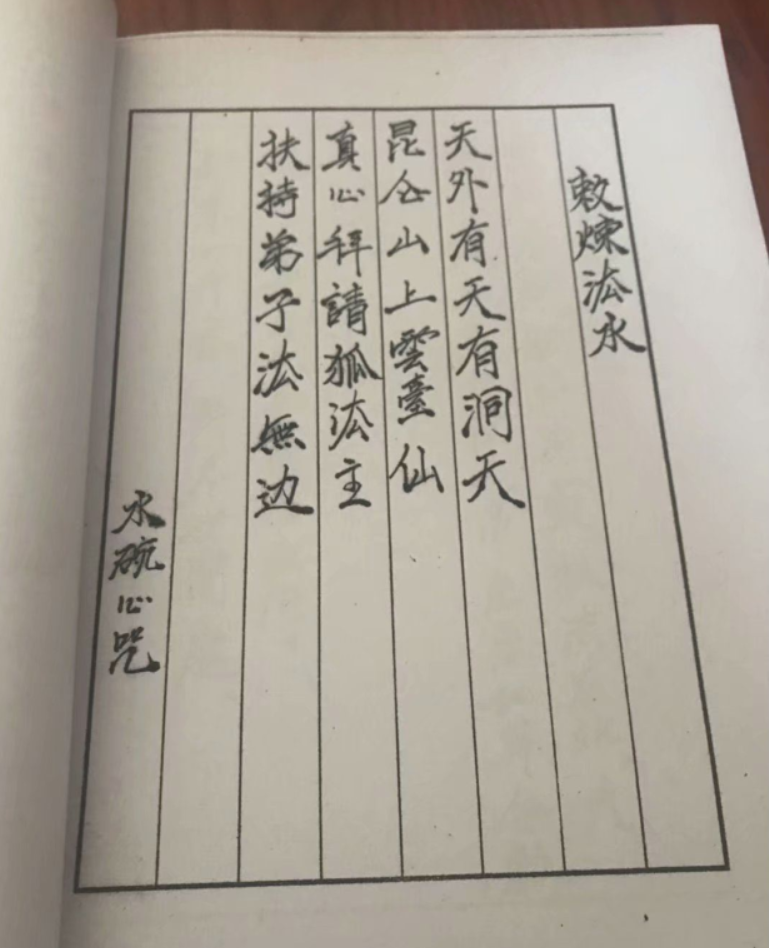 敕煉法水
天外有天有洞天
昆仑山上雲臺仙
真心拜請狐法主
扶持弟子法無边
水碗心咒